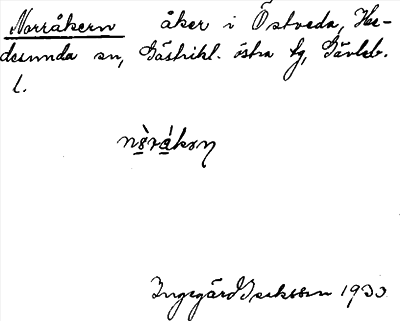 Norråkern åker i Östveda, He-
desunda sn, Gästrikl. östra tg, Gävleb.
l.
Ingegärd Isaksson 1933